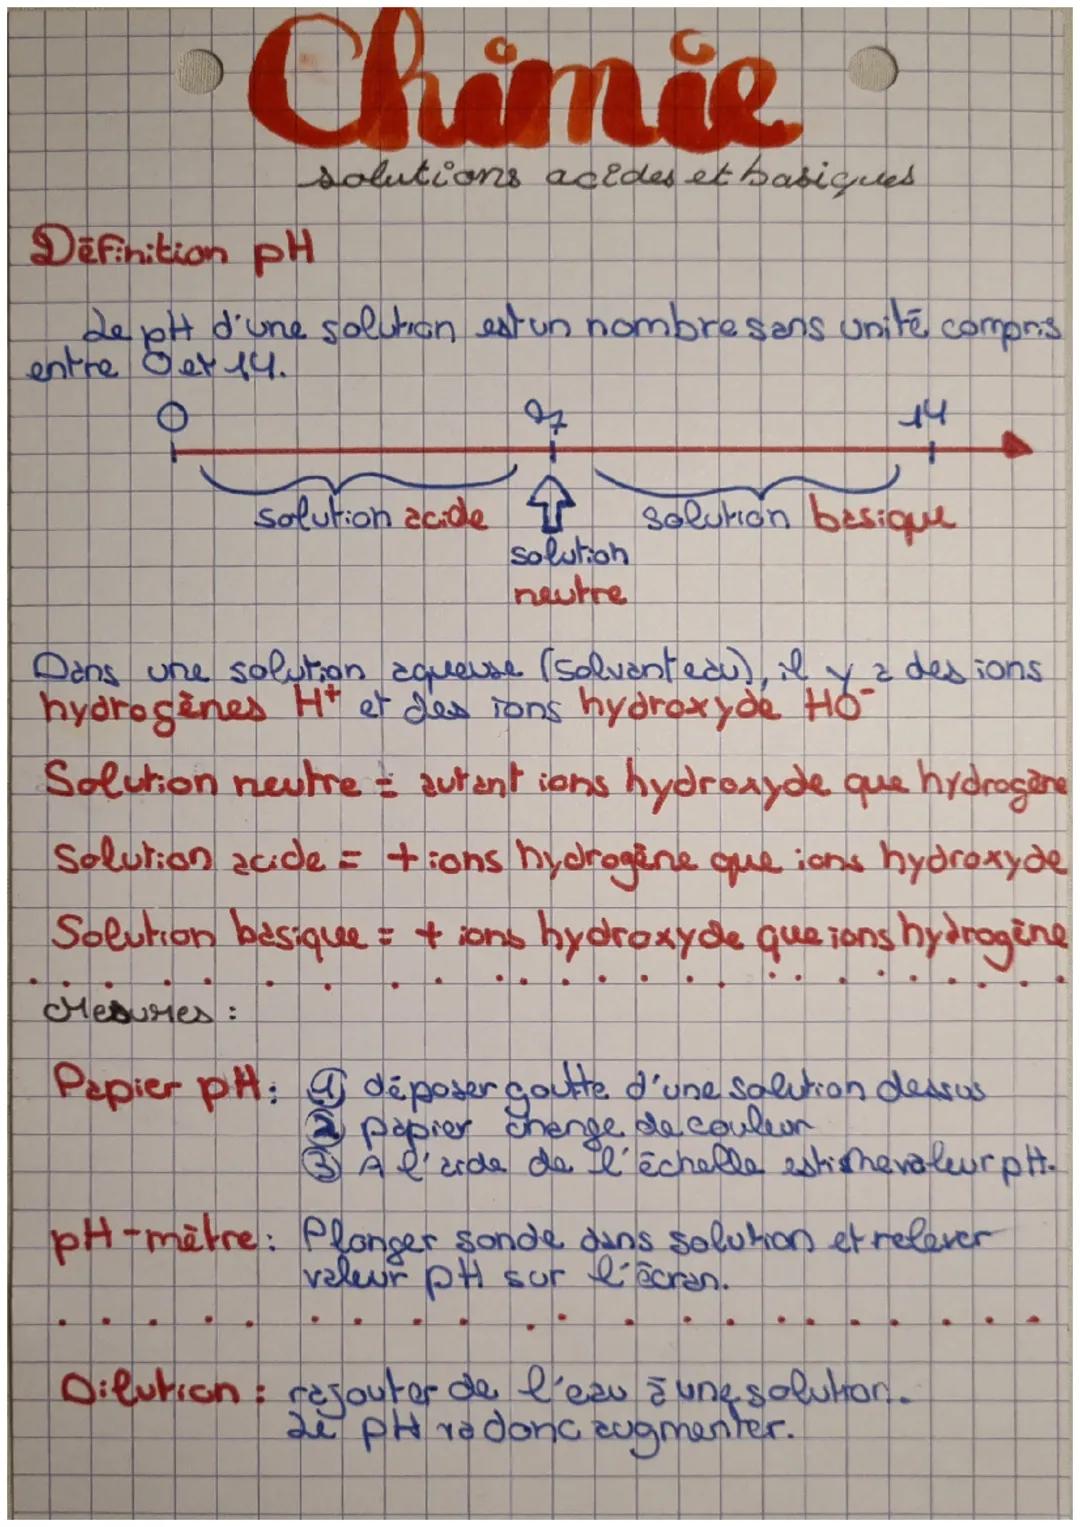 Chimie
solutions acides et basiques
Définition pH
Le pH d'une solution est un nombre sans unité compris
entre 0 et 14.
0 7 14
solution acide solution basique
solution
neutre
Dans une solution aqueuse (solvant eau), il y a des ions
hydrogènes H⁺ et des ions hydroxyde HO⁻
Solution neutre = autant ions hydroxyde que hydrogène
Solution acide = + ions hydrogène que ions hydroxyde
Solution basique = + ions hydroxyde que ions hydrogène
Mesures :
Papier pH : ① déposer goutte d'une solution dessus
② papier change de couleur
③ A l'aide de l'échelle estime valeur pH.
pH-mètre : Plonger sonde dans solution et relever
valeur pH sur l'écran.
Dilution : rajouter de l'eau à une solution.
Le pH va donc augmenter.